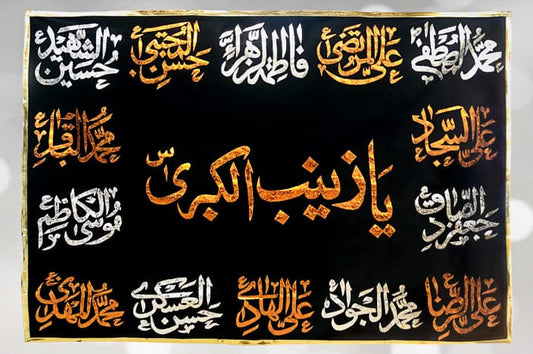 محمد المصطفیٰ علی المرتضیٰ فاطمة الزهراء حسن المجتبیٰ حسین الشهید
علی السجاد محمد الباقر
یا زینب الکبریٰ س
جعفر الصادق موسیٰ الکاظم
علی الرضا محمد الجواد علی الهادی حسن العسکری محمد المهدی